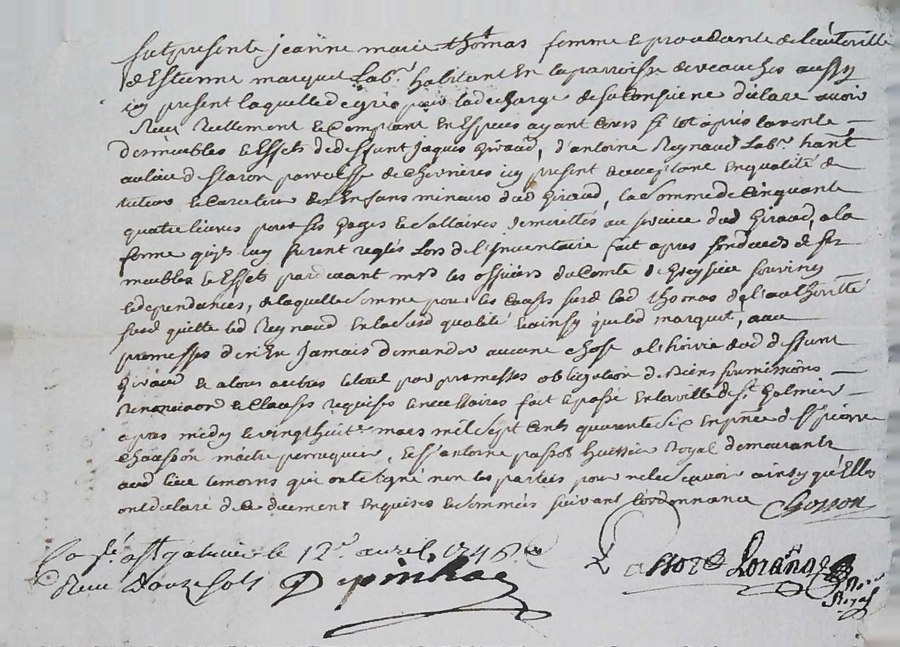 fut presente jeanne marie thomas femme le procedante de l'autorité
d'Estienne marquet Lab.r habitant En la parroisse de veauche aussy
icy present laquelle de gré pour la decharge de sa Consiene declare avoir
Receu Reellement le Comptant En Especes ayant Cours tot après la vente
des meubles le Effets de deffunt Jaques Giraud, d'antoine Reynaud Lab.r hant
au lieu d'Estaron parroisse de chevrieres icy present acceptant En qualité de
tuteur le Curateur des Enfans mineurs dud Giraud, la somme de Cinquante
quatre livres pour ses gages le sallaires demerittés au service dud Giraud, a la
forme qu'ils luy furent reglés Lors de l'Inventaire fait apres son deceds de ses
meubles le Effets pardevant mrs les officiers du Comté de souviny
le dependances, de laquelle somme pour les Causes susd lad thomas de l'authorité
susd quitte led Reynaud En lad susd qualité le ainsy que led marquet, avec
promesses de n'En Jamais demander aucune chose a l'hoirie dud deffunt
Giraud le a tous autres le tout par promesses obligation de biens soumissions
Renonciaon le Clauses requises le necessaires fait le passé En la ville de s.t Galmier
apres midy le vingt huit.e mars mil sept Cents quarante six En pnce de s.r pierre
Chausson maitre perruquier, le s.r antoine passot huissier Royal demeurants
aud lieu temoins qui ont signé non les parties pour ne le scavoir ainsy qu'Elles
ont declaré de ce duement Enquises le sommés suivant l'ordonnance Chosson
Con.lé a St galmier le 12.e avril 1746
Receu douze sols Depinhac
Passot Lorange
Nore
Royal